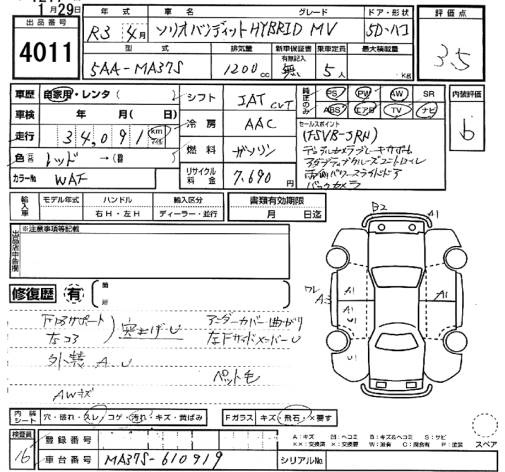 1月29日
出品番号
4011
年式 車名 グレード ドア・形状 評価点
R3 4月 ソリオバンディットHYBRID MV 5D-ハコ 3.5
型式 排気量 新車保証書 有無記入 乗車定員 最大積載量
5AA-MA37S 1200cc 無 5人 kg
車歴 自家用・レンタ( ) シフト IAT CVT 純正のみ PS PW AW SR 内装評価
車検 年 月(日) 冷房 AAC ABS エアB TV ナビ b
走行 34,091 km マイル セールスポイント
(F5VB-JRH)
色 レッド→( ) 燃料 ガソリン デュアルカメラブレーキサポート
アダプティブクルーズコントロール
カラーNo WAF リサイクル料金 7,690円 両側パワースライドドア
バックカメラ
輸入車 モデル年式 ハンドル 右H・左H 輸入区分 ディーラー・並行 書類有効期限 月 日迄
B2 A1
出品店申告欄 ※注意事項等記載
ワレ A3 A1 A1
A1
U1 U1
修復歴 有 箇所
下回サポート 左コア 突上げU アンダーカバー曲がり
左F サイドメンバーU
外装 A.U
ペット毛
AWキズ
内装シート 穴・破れ・スレ・コゲ・汚れ・キズ・黄ばみ Fガラス キズ・飛石・×要す
検査員 16 登録番号
A:キズ U:ヘコミ B:キズ&ヘコミ S:サビ
スペア
車台番号 MA37S-610919 シリアルNo